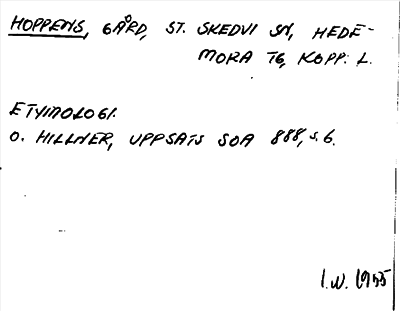 HOPPENS, GÅRD, ST. SKEDVI SN, HEDE-
MORA TG, KOPP. L.
ETYMOLOGI.
O. HILLNER, UPPSATS SOA 888, s. 6.
I.W. 1955